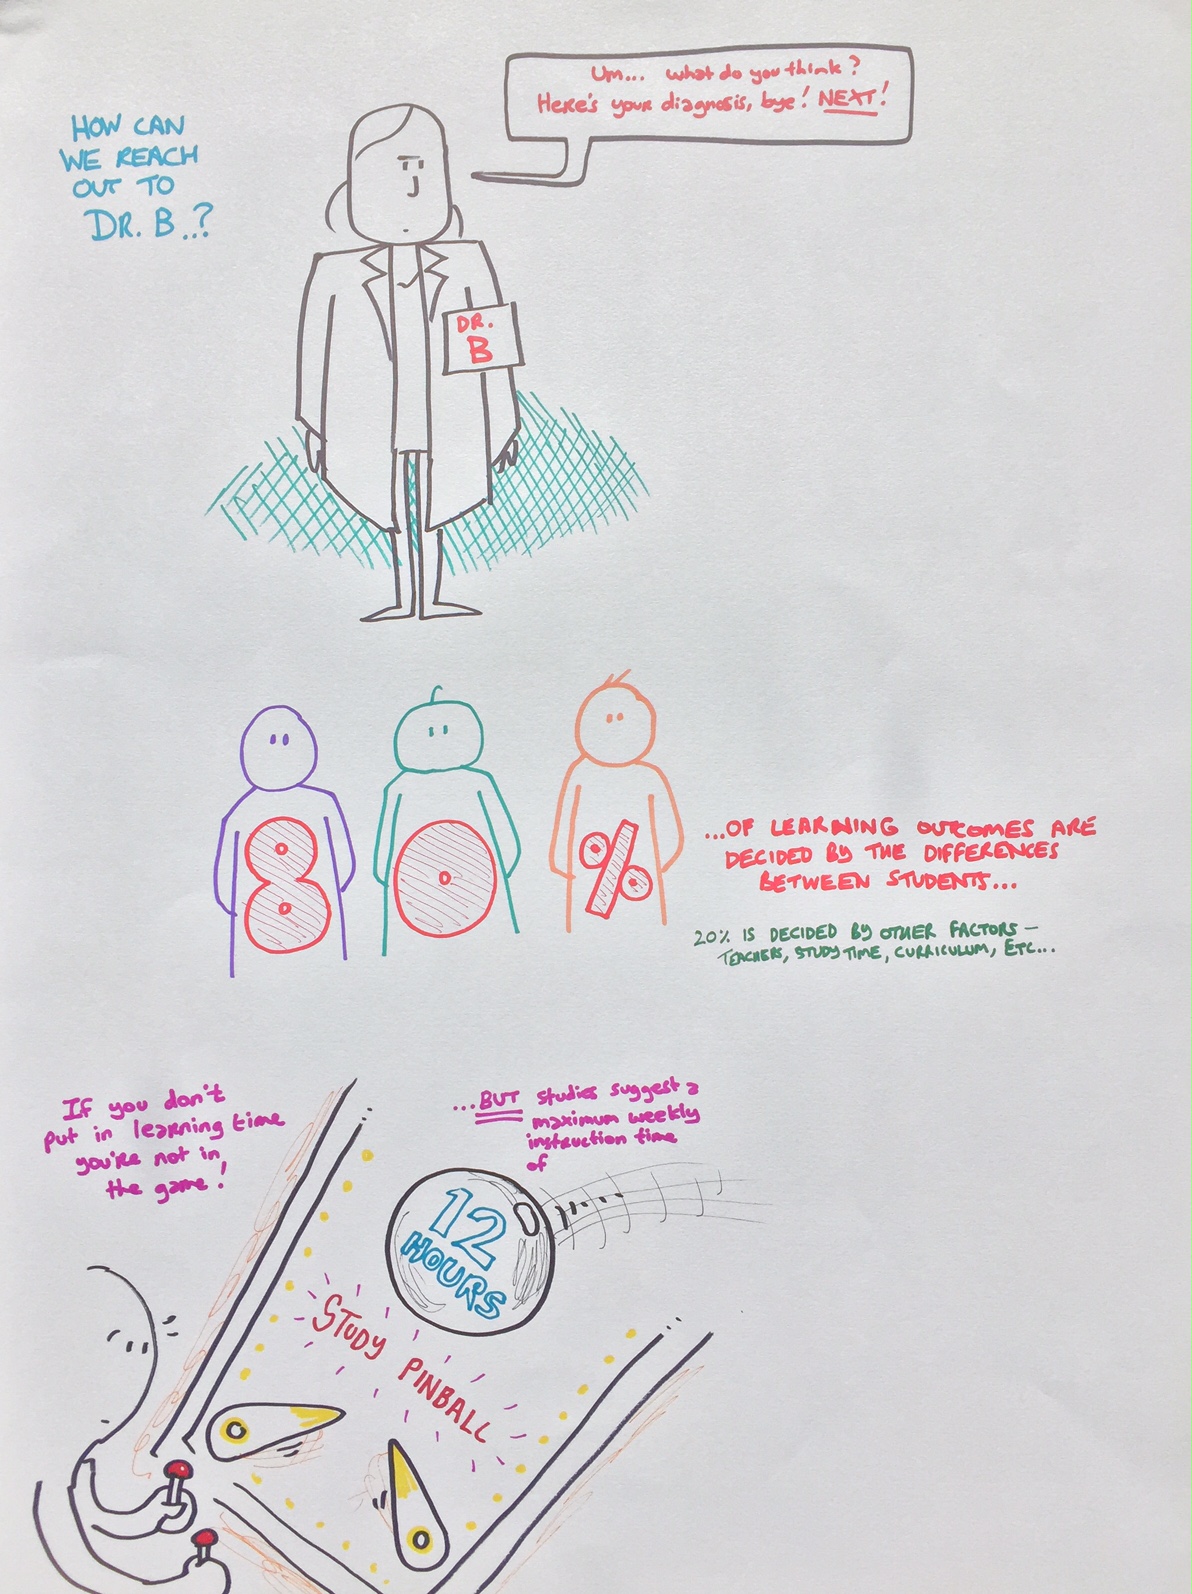 HOW CAN
WE REACH
OUT TO
DR. B...?
Um... what do you think?
Here's your diagnosis, bye! NEXT!
DR.
B
80%
...OF LEARNING OUTCOMES ARE
DECIDED BY THE DIFFERENCES
BETWEEN STUDENTS...
20% IS DECIDED BY OTHER FACTORS -
TEACHERS, STUDY TIME, CURRICULUM, ETC...
If you don't
put in learning time
you're not in
the game!
...BUT studies suggest a
maximum weekly
instruction time
of
12
HOURS
STUDY PINBALL